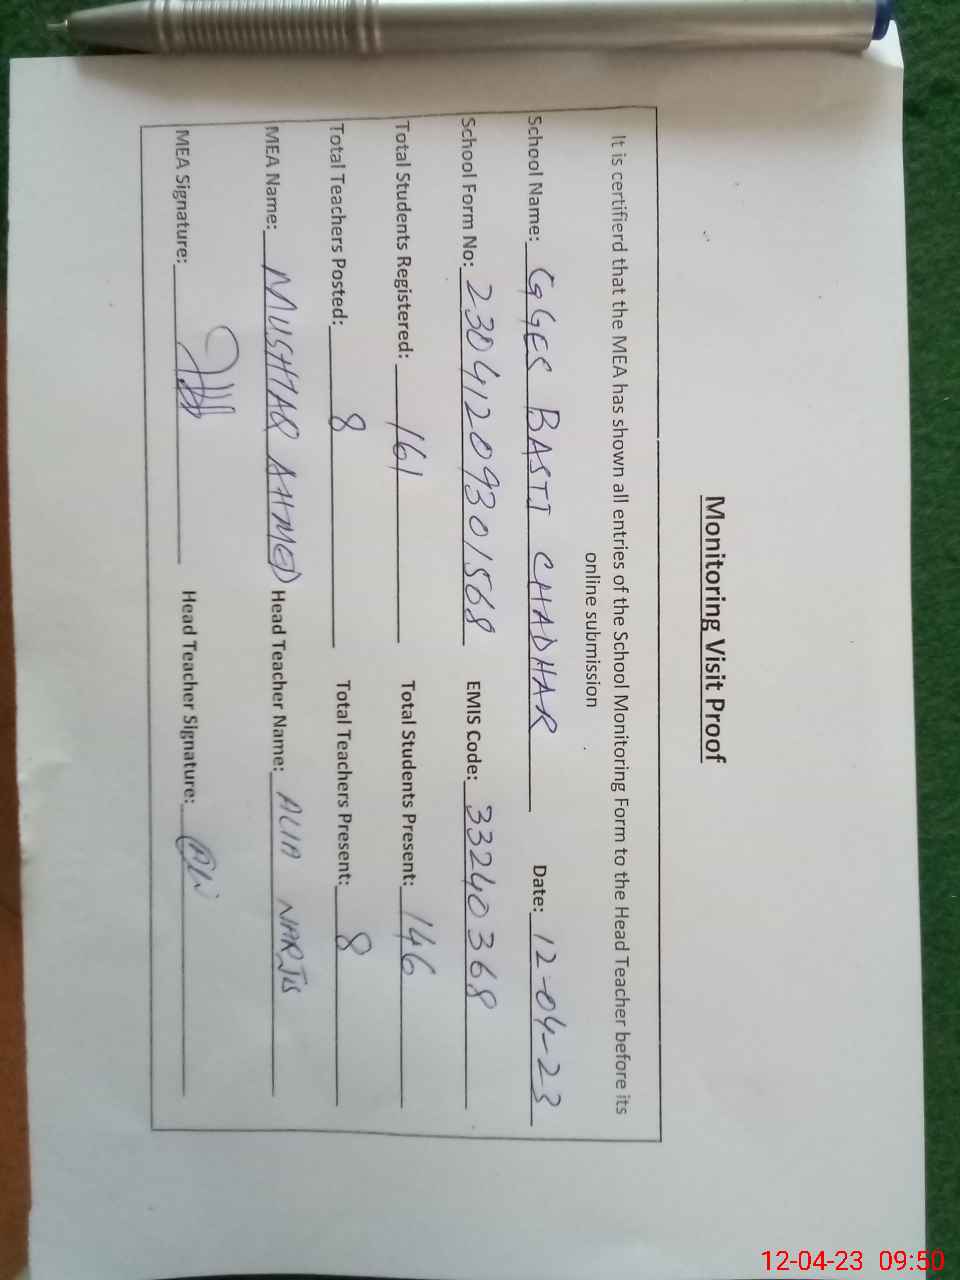 Monitoring Visit Proof
It is certifierd that the MEA has shown all entries of the School Monitoring Form to the Head Teacher before its
online submission
School Name: GGES BASTI CHADHAR Date: 12-04-23
School Form No: 23041209301568 EMIS Code: 33240368
Total Students Registered: 161 Total Students Present: 146
Total Teachers Posted: 8 Total Teachers Present: 8
MEA Name: MUSHTAQ AHMED Head Teacher Name: ALIA NARJIS
MEA Signature: Head Teacher Signature:
12-04-23 09:50